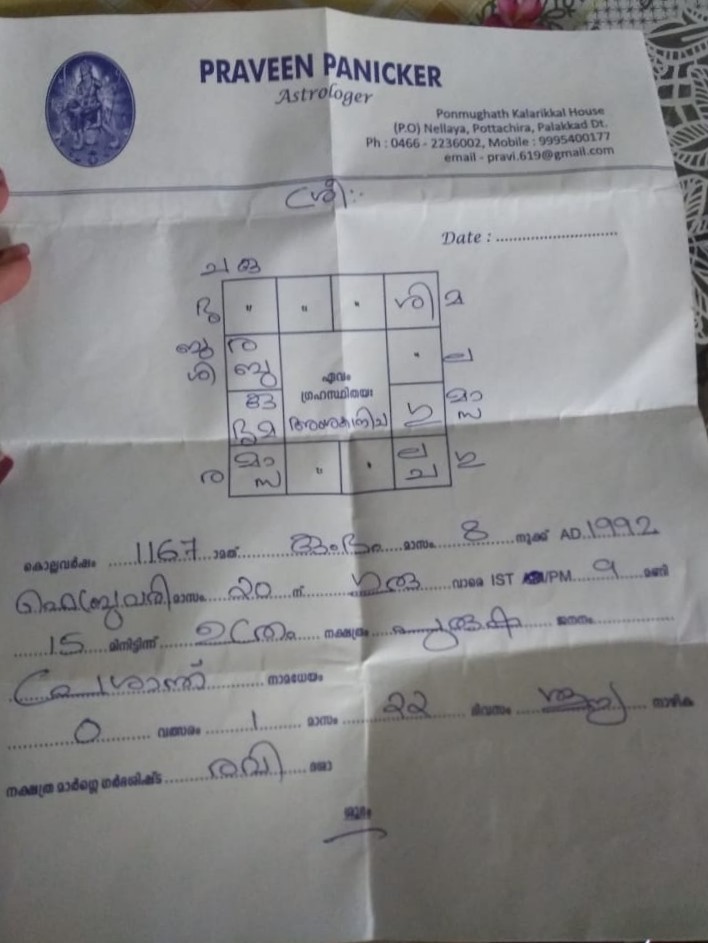 PRAVEEN PANICKER
Astrologer
Ponmughath Kalarikkal House
(P.O) Nellaya, Pottachira, Palakkad Dt.
Ph : 0466 - 2236002, Mobile : 9995400177
email - pravi.619@gmail.com
ശ്രീ:
Date : ..............................
ച
ശി മ
ബു ര
ശി ബു ല
ഏവം
ഗ്രഹസ്ഥിതയഃ
മ മാ
ര മാ ല
ച
കൊല്ലവർഷം ....1167....ാമത്....കുംഭം....മാസം....8....നുക്ക് AD.1992
ഫെബ്രുവരി മാസം....20....ന്....ഗുരു....വാരെ IST /PM....9....മണി
....15....മിനിട്ടിന്ന്....ഉത്രം....നക്ഷത്രം....പുരുഷ....ജനനം............
പ്രശാന്ത്............നാമധേയം
............0............വത്സരം....1....മാസം....22....ദിവസം....ശൂന്യ....നാഴിക
നക്ഷത്ര മാർഗ്ഗെ ഗർഭശിഷ്ട............രവി....ദശാ
ശുഭം